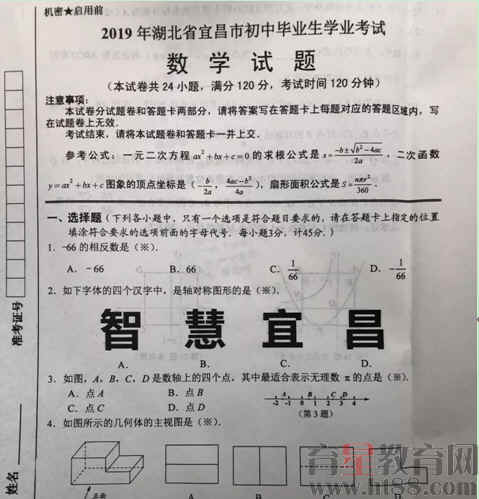 机密★启用前
2019年湖北省宜昌市初中毕业生学业考试
数学试题
(本试卷共24小题,满分120分,考试时间120分钟)
注意事项:
本试卷分试题卷和答题卡两部分,请将答案写在答题卡上每题对应的答题区域内,写
在试题卷上无效.
考试结束,请将本试题卷和答题卡一并上交.
参考公式:一元二次方程 ax²+bx+c=0 的求根公式是 x=(-b±√(b²-4ac))/2a,二次函数
y=ax²+bx+c 图象的顶点坐标是(-b/2a, (4ac-b²)/4a),扇形面积公式是 S=nπr²/360.
一、选择题(下列各小题中,只有一个选项是符合题目要求的,请在答题卡上指定的位置
填涂符合要求的选项前面的字母代号.每小题3分,计45分.)
1. -66的相反数是(※).
A. -66 B. 66 C. 1/66 D. -1/66
2. 如下字体的四个汉字中,是轴对称图形的是(※).
智 慧 宜 昌
A. B. C. D.
3. 如图,A,B,C,D是数轴上的四个点,其中最适合表示无理数 π 的点是(※).
A. 点A B. 点B
C. 点C D. 点D
A B C D
-2 -1 0 1 2 3 4
(第3题)
4. 如图所示的几何体的主视图是(※).
准考证号
姓名
育星教育网
www.ht88.com